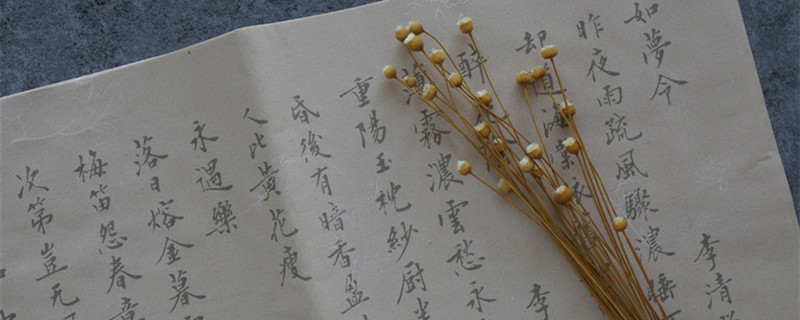 如夢令 李清
昨夜雨疏風驟濃睡
却道海
醉 李
薄霧濃雲愁永
重陽玉枕紗厨半
昏後有暗香盈
人比黃花瘦
永遇樂
落日熔金暮
梅笛怨春意
次第豈无